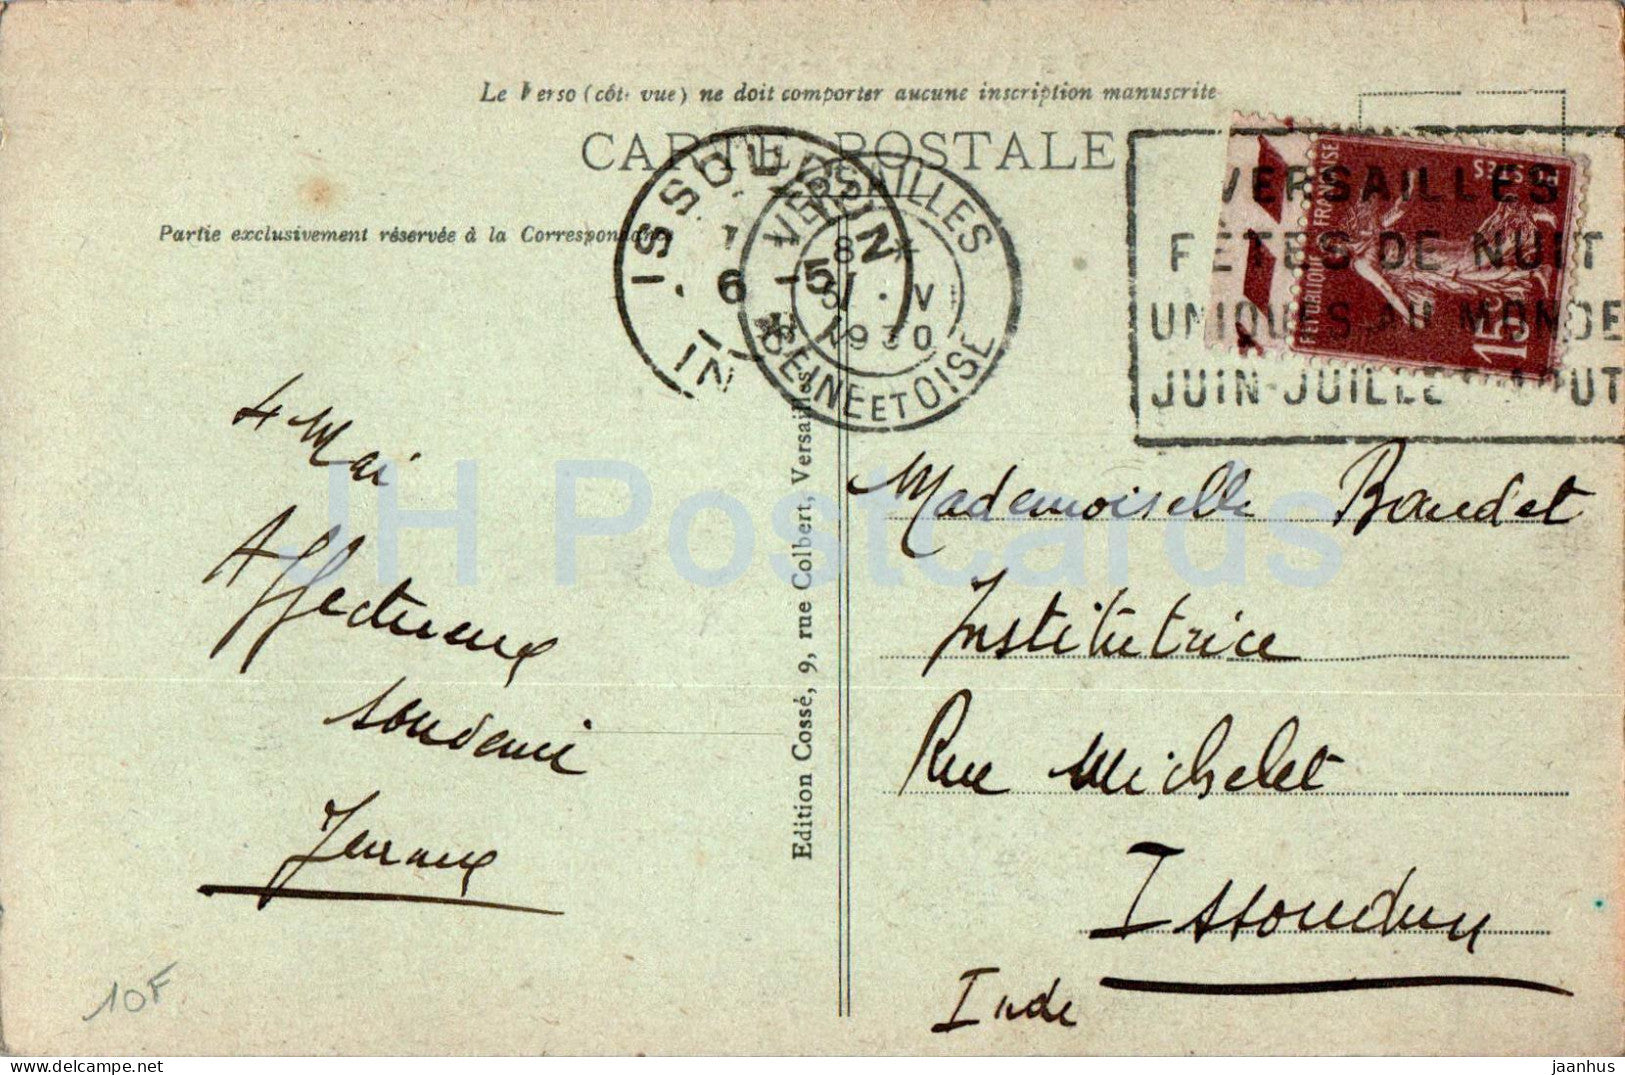 Le Verso (côté vue) ne doit comporter aucune inscription manuscrite
CARTE POSTALE
Partie exclusivement réservée à la Correspondance
ISSOUDUN
6 -5
IN
VERSAILLES
8
V
1930
SEINE ET OISE
VERSAILLES
FETES DE NUIT
UNIQUES AU MONDE
JUIN-JUILLET AOUT
REPUBLIQUE FRANÇAISE
POSTES
15
4 Mai
Affectueux
souvenir
Mademoiselle Baudet
Institutrice
Rue Michelet
Issoudun
Inde
Edition Cossé, 9, rue Colbert, Versailles
10F
JH Postcards
jaanhus